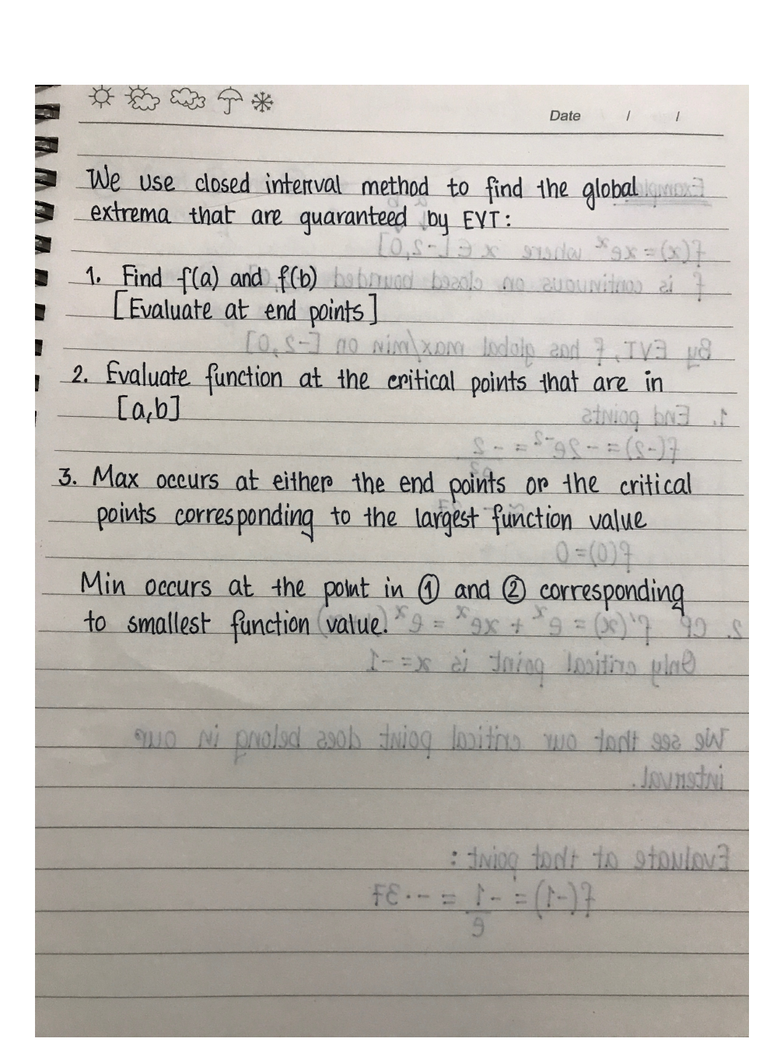 Date / /
We use closed interval method to find the global
extrema that are guaranteed by EVT:
1. Find f(a) and f(b)
[Evaluate at end points]
2. Evaluate function at the critical points that are in
[a,b]
3. Max occurs at either the end points or the critical
points corresponding to the largest function value
Min occurs at the point in ① and ② corresponding
to smallest function value.